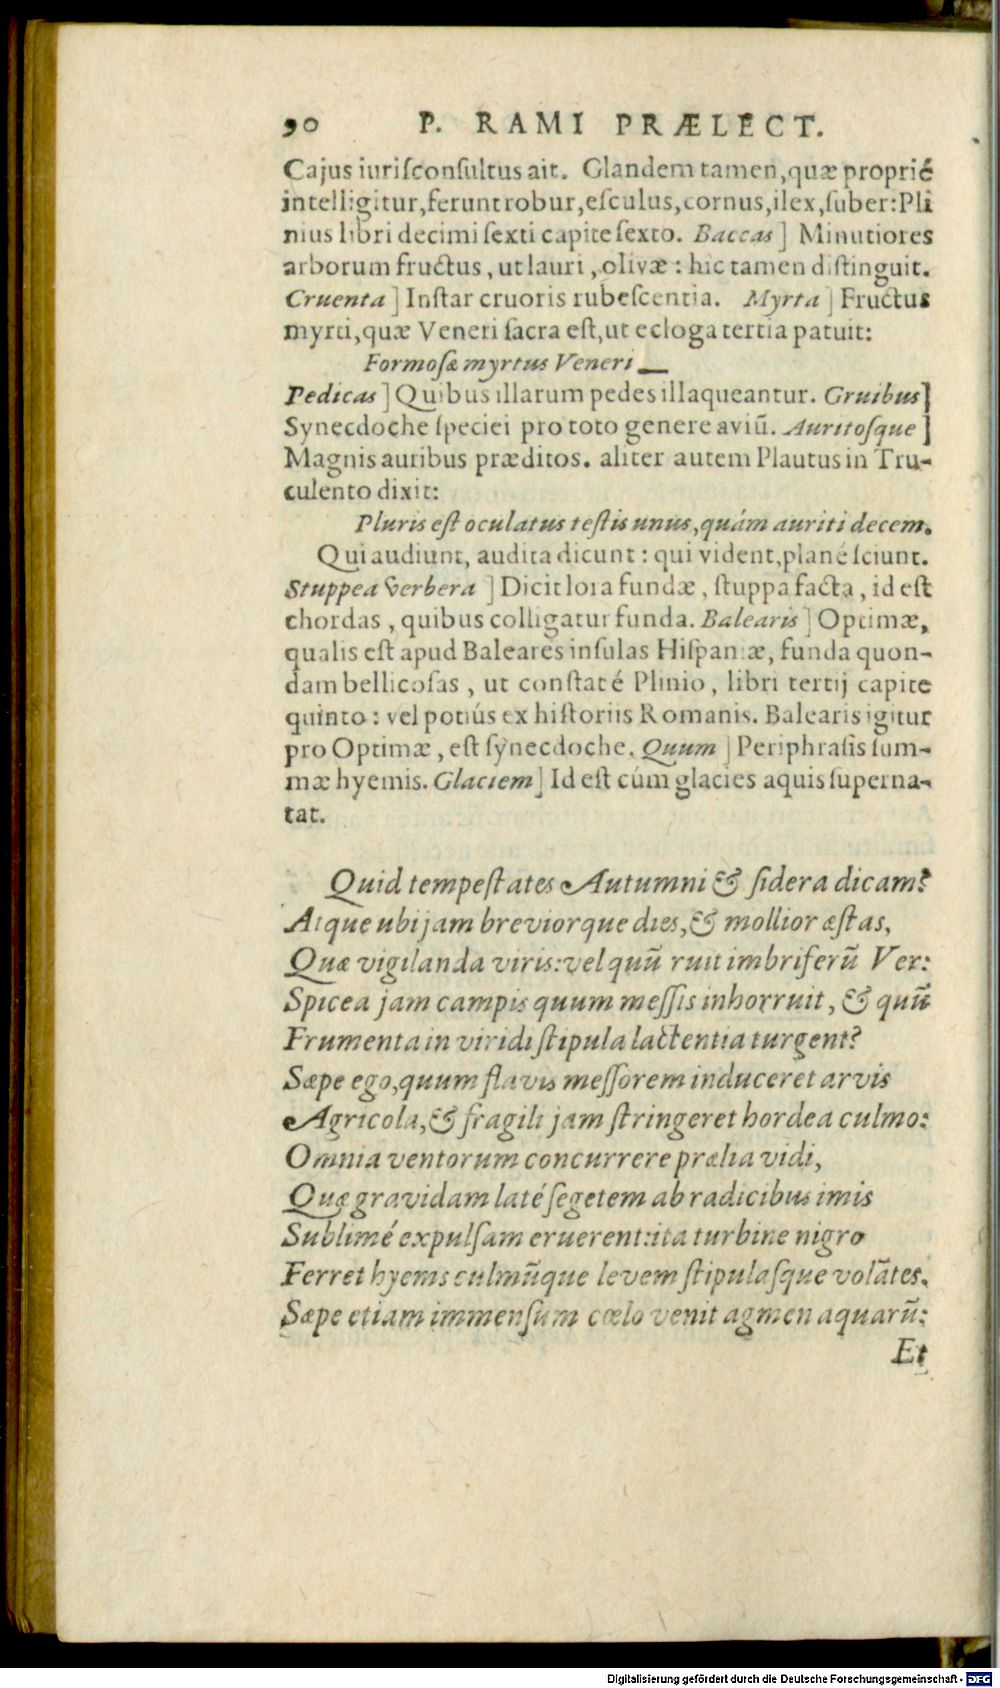 90 P. RAMI PRÆLECT.
Cajus iuriſconſultus ait. Glandem tamen,quæ proprié
intelligitur,ferunt robur,eſculus,cornus,ilex,ſuber:Pli
nius libri decimi ſexti capite ſexto. Baccas] Minutiores
arborum fructus, ut lauri, olivæ: hic tamen diſtinguit.
Cruenta] Inſtar cruoris rubeſcentia. Myrta] Fructus
myrti,quæ Veneri ſacra eſt,ut ecloga tertia patuit:
Formoſæ myrtus Veneri —
Pedicas] Quibus illarum pedes illaqueantur. Gruibus]
Synecdoche ſpeciei pro toto genere aviũ. Auritoſque]
Magnis auribus præditos. aliter autem Plautus in Tru-
culento dixit:
Pluris eſt oculatus teſtis unus,quám auriti decem.
Qui audiunt, audita dicunt: qui vident,plané ſciunt.
Stuppea verbera] Dicit lora fundæ, ſtuppa facta, id eſt
chordas, quibus colligatur funda. Balearis] Optimæ,
qualis eſt apud Baleares inſulas Hiſpaniæ, funda quon-
dam bellicoſas, ut conſtat é Plinio, libri tertij capite
quinto: vel potiús ex hiſtoriis Romanis. Balearis igitur
pro Optimæ, eſt ſynecdoche. Quum] Periphraſis ſum-
mæ hyemis. Glaciem] Id eſt cúm glacies aquis ſuperna-
tat.
Quid tempeſtates Autumni & ſidera dicam?
Atque ubi jam breviorque dies,& mollior æſtas,
Quæ vigilanda viris:vel quũ ruit imbriferũ Ver:
Spicea jam campis quum meſſis inhorruit, & quũ
Frumenta in viridi ſtipula lactentia turgent?
Sæpe ego,quum flavis meſſorem induceret arvis
Agricola,& fragili jam ſtringeret hordea culmo:
Omnia ventorum concurrere prælia vidi,
Quæ gravidam laté ſegetem ab radicibus imis
Sublimé expulſam eruerent:ita turbine nigro
Ferret hyems culmũque levem ſtipulaſque volãtes.
Sæpe etiam immenſum cœlo venit agmen aquarũ:
Et
Digitalisierung gefördert durch die Deutsche Forschungsgemeinschaft - DFG